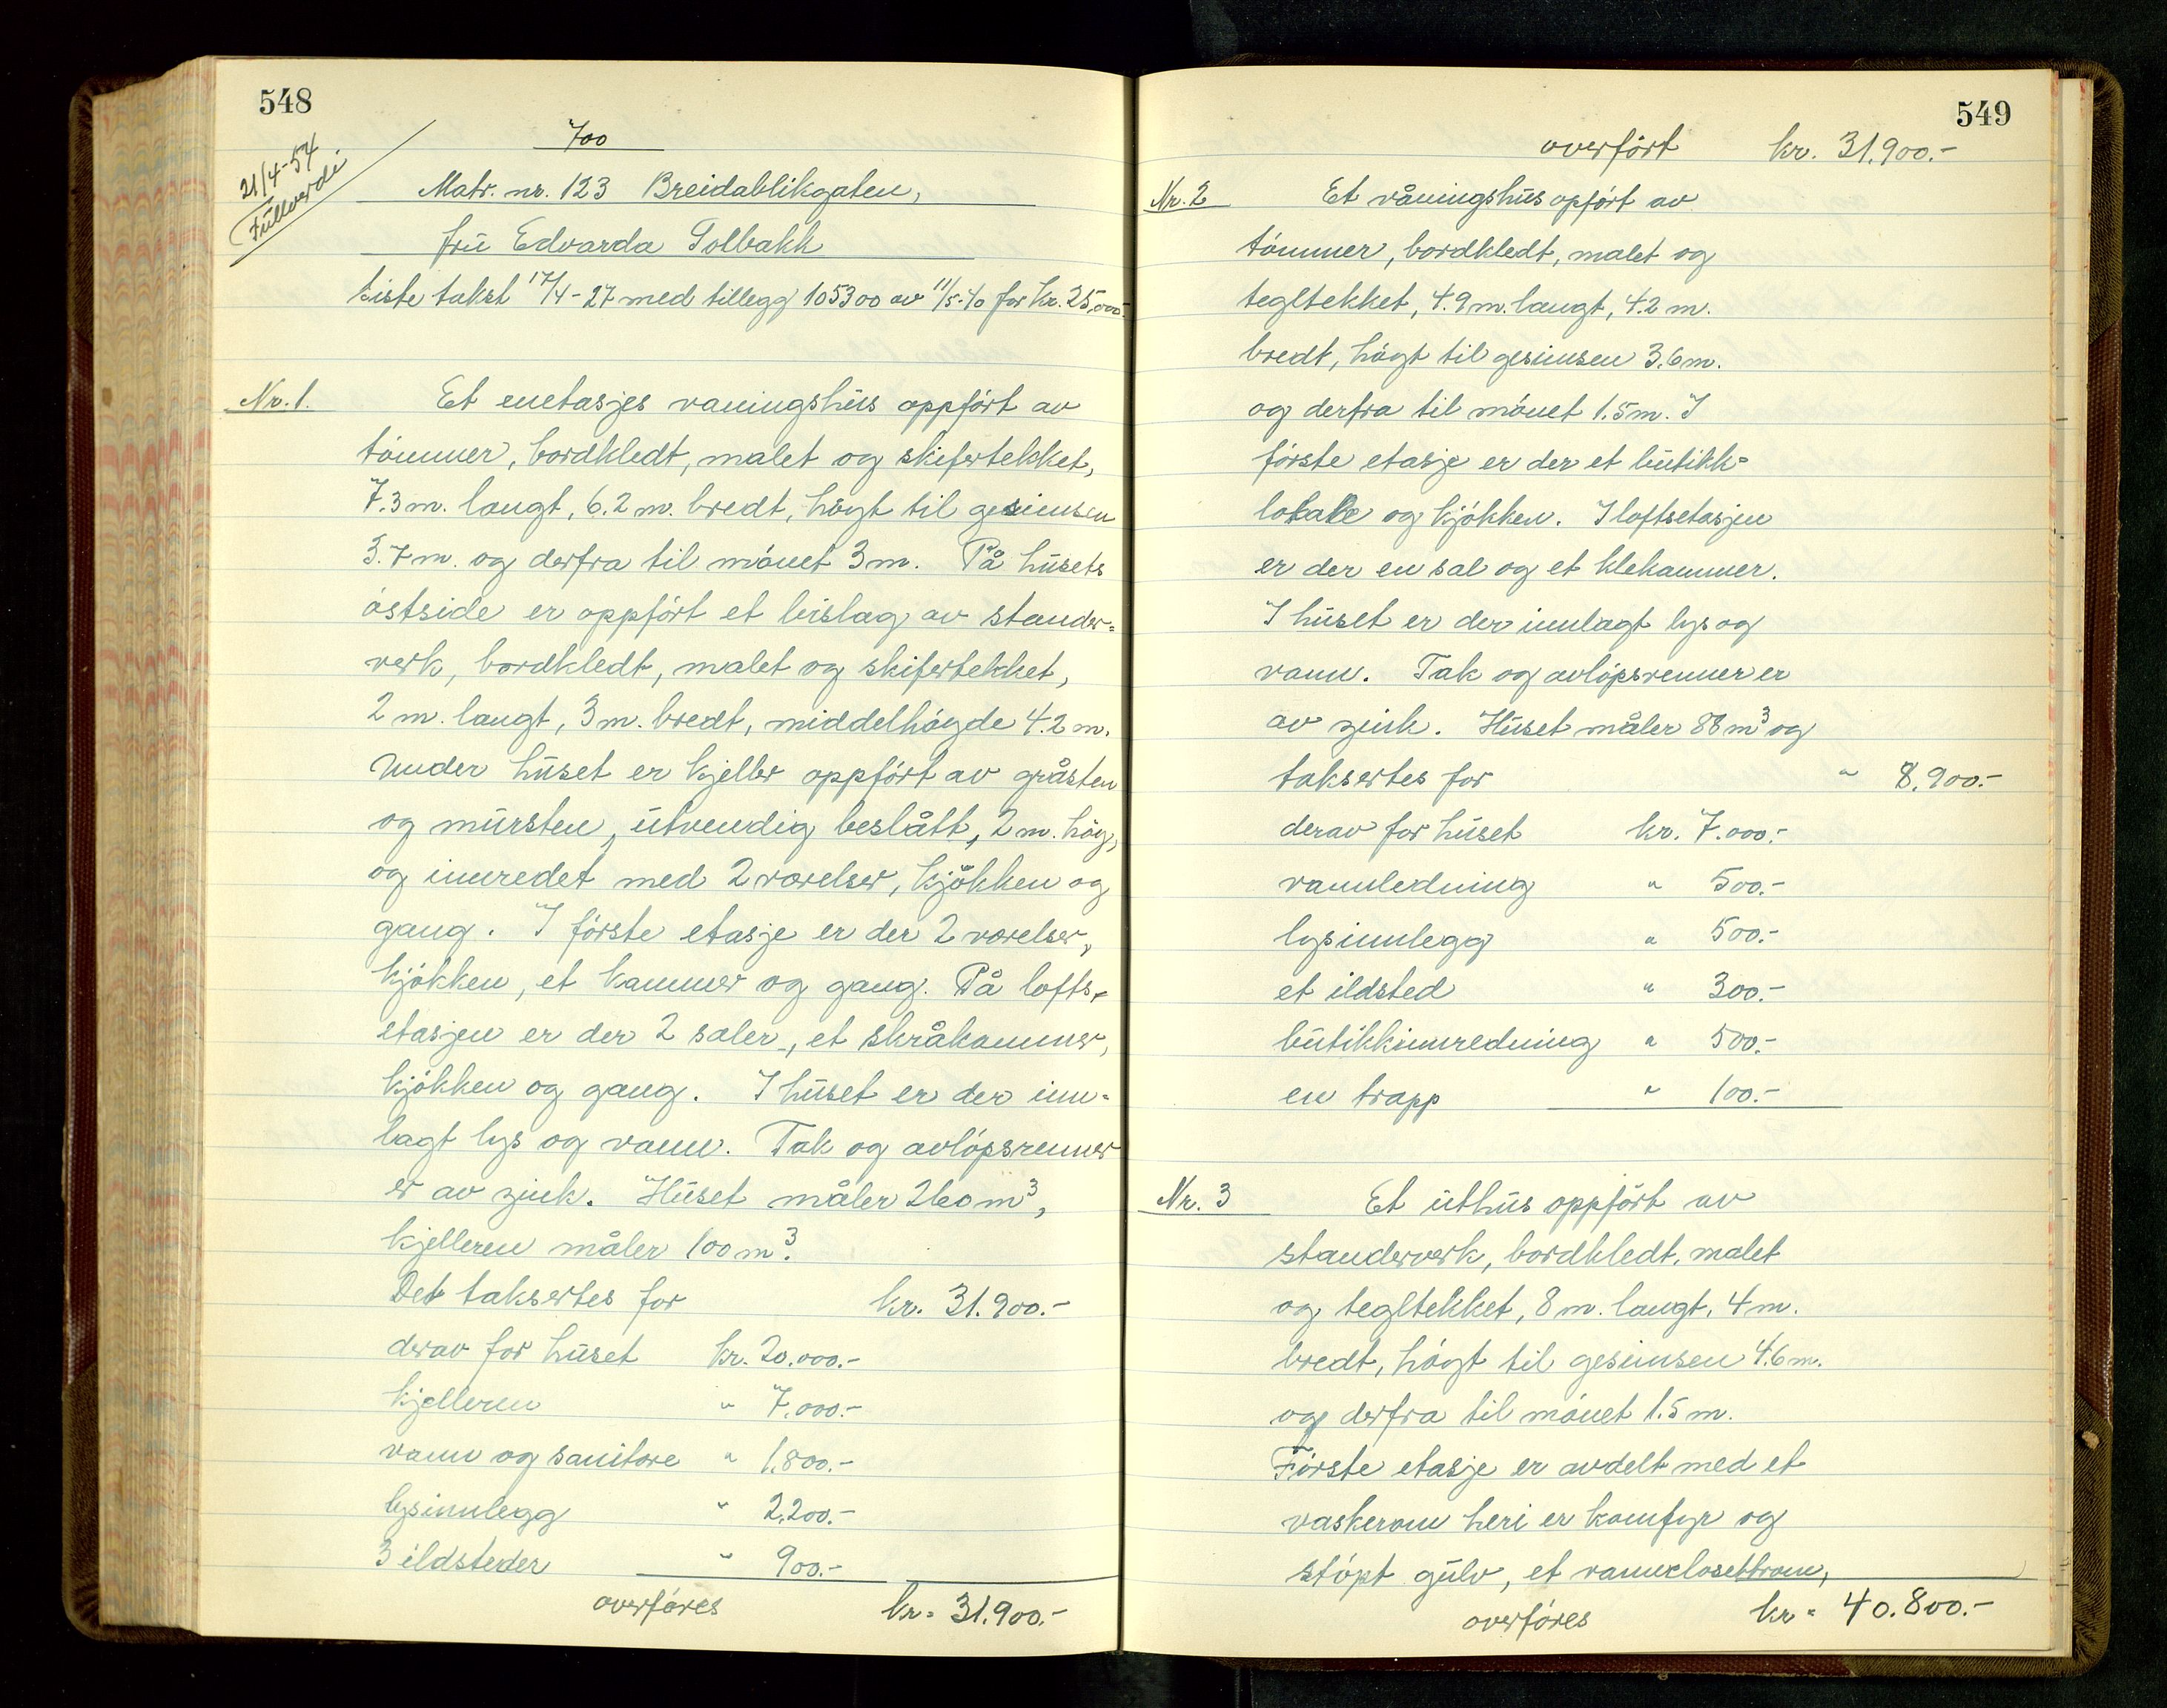 548
21/4-54
Fullverdi
700
Matr. nr. 123 Breidablikgaten,
fru Edvarda Solbakk
siste takst 17/4-27 med tillegg 105300 av 11/5-40 for kr. 25.000.-
Nr. 1. Et enetasjes vaningshus oppført av
tømmer, bordkledt, malet og skifertekket,
7.3 m. langt, 6.2 m. bredt, høgt til gesimsen
3.7 m. og derfra til mønet 3 m. På husets
østside er oppført et bislag av stander=
verk, bordkledt, malet og skifertekket,
2 m. langt, 3 m. bredt, middelhøgde 4.2 m.
Under huset er kjeller oppført av gråsten
og mursten, utvendig beslått, 2 m. høg,
og innredet med 2 værelser, kjøkken og
gang. I første etasje er der 2 værelser,
kjøkken, et kammer og gang. På lofts-
etasjen er der 2 saler, et skråkammer,
kjøkken og gang. I huset er der inn-
lagt lys og vann. Tak og avløpsrenner
er av zink. Huset måler 260 m³,
kjelleren måler 100 m³.
Det taksertes for kr. 31.900.-
derav for huset kr. 20.000.-
kjelleren " 7.000.-
vann og sanitære " 1.800.-
lysinnlegg " 2.200.-
3 ildsteder " 900.-
overføres kr. 31.900.-
549
overført kr. 31.900.-
Nr. 2 Et våningshus opført av
tømmer, bordkledt, malet og
tegltekket, 4.9 m. langt, 4.2 m.
bredt, høgt til gesimsen 3.6 m.
og derfra til mønet 1.5 m. I
første etasje er der et butikk=
lokale og kjøkken. I loftsetasjen
er der en sal og et klekammer.
I huset er der innlagt lys og
vann. Tak og avløpsrenner er
av zink. Huset måler 88 m³ og
taksertes for " 8.900.-
derav for huset kr. 7.000.-
vannledning " 500.-
lysinnlegg " 500.-
et ildsted " 300.-
butikkinnredning " 500.-
en trapp " 100.-
Nr. 3 Et uthus oppført av
standerverk, bordkledt, malet
og tegltekket, 8 m. langt, 4 m.
bredt, høgt til gesimsen 4.6 m.
og derfra til mønet 1.5 m.
Første etasje er avdelt med et
vaskerom heri er komfyr og
støpt gulv, et vannclosettrom,
overføres kr. 40.800.-